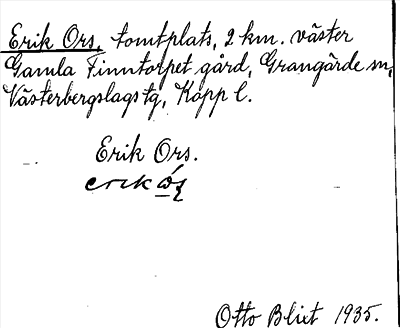 Erik Ors, tomtplats, 2 km. väster
Gamla Finntorpet gård, Grangärde sn,
Västerbergslags tg, Kopp l.
Erik Ors.
Otto Blixt 1935.